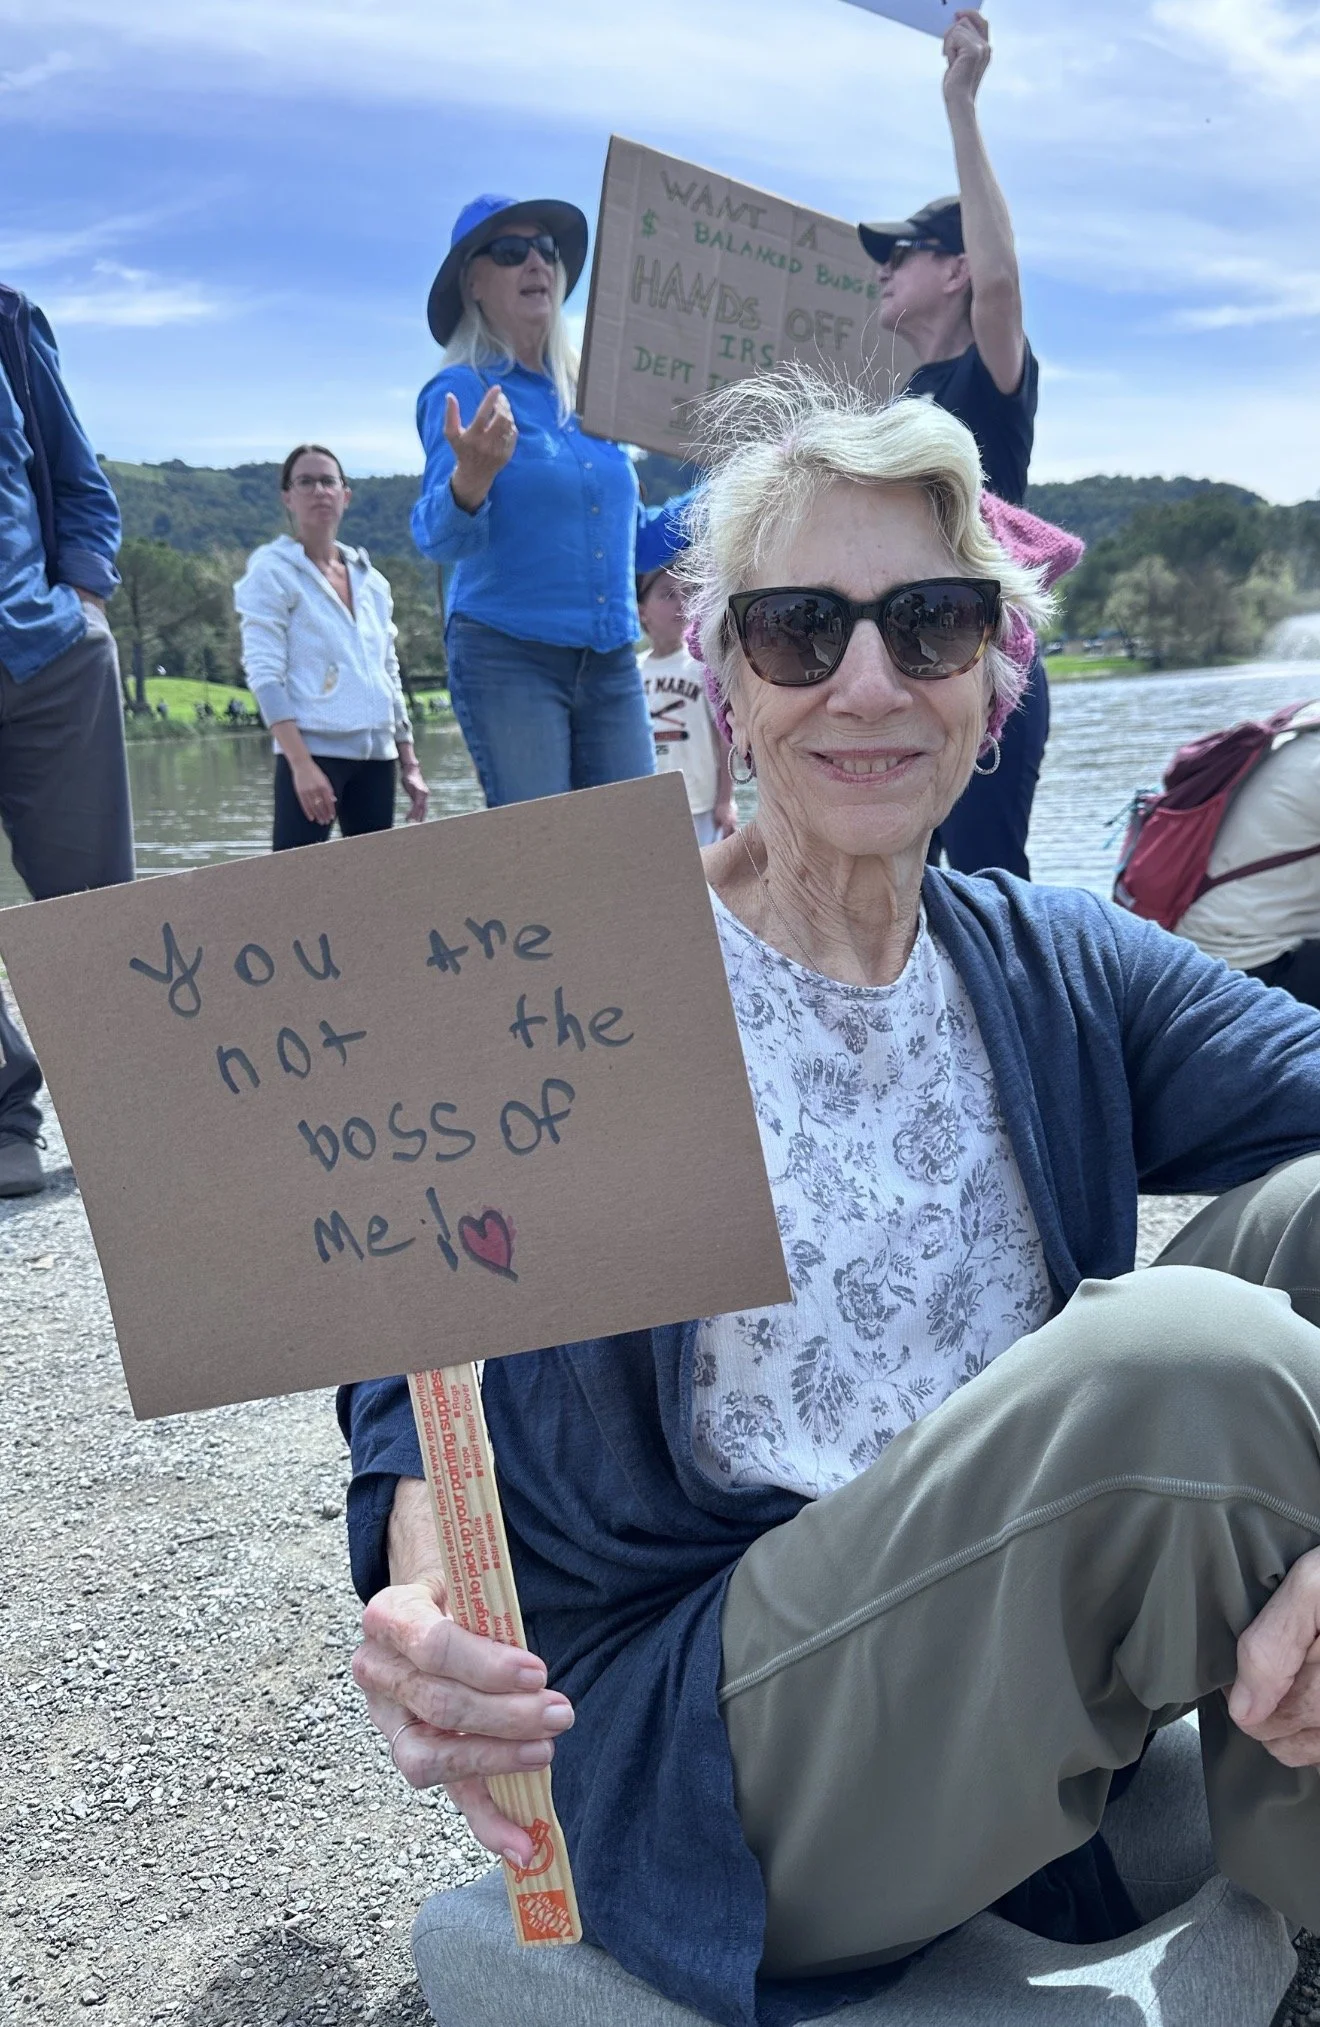 WANT A
$ BALANCED BUDGE
HANDS OFF
IRS
DEPT
T MARIN
25
You Are
not the
boss of
Me!
get lead paint safety facts at www.epa.gov/lead
forget to pick up your painting supplies
Tape
Rags
Paint Kits
Paint Roller Cover
Tray
Stir Sticks
Cloth
THE HOME DEPOT